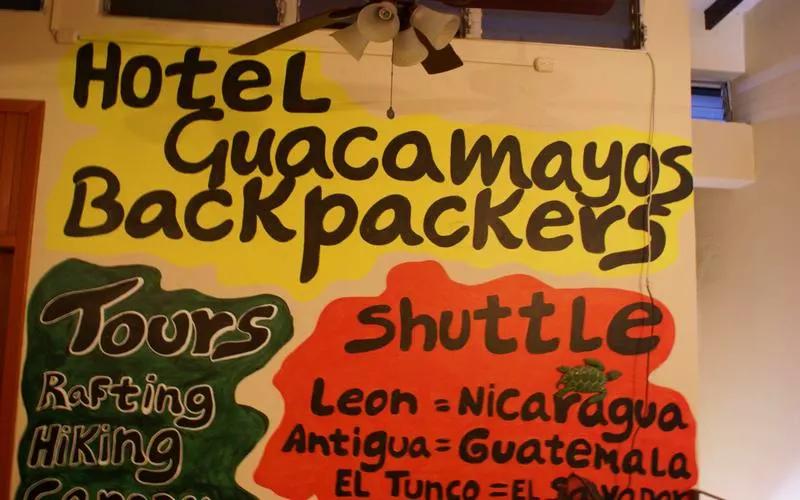 HoteL
Guacamayos
BacKpacKers
Tours
Rafting
HiKing
Canopy
shuttLe
Leon = Nicaragua
Antigua = Guatemala
EL Tunco = EL Salvador